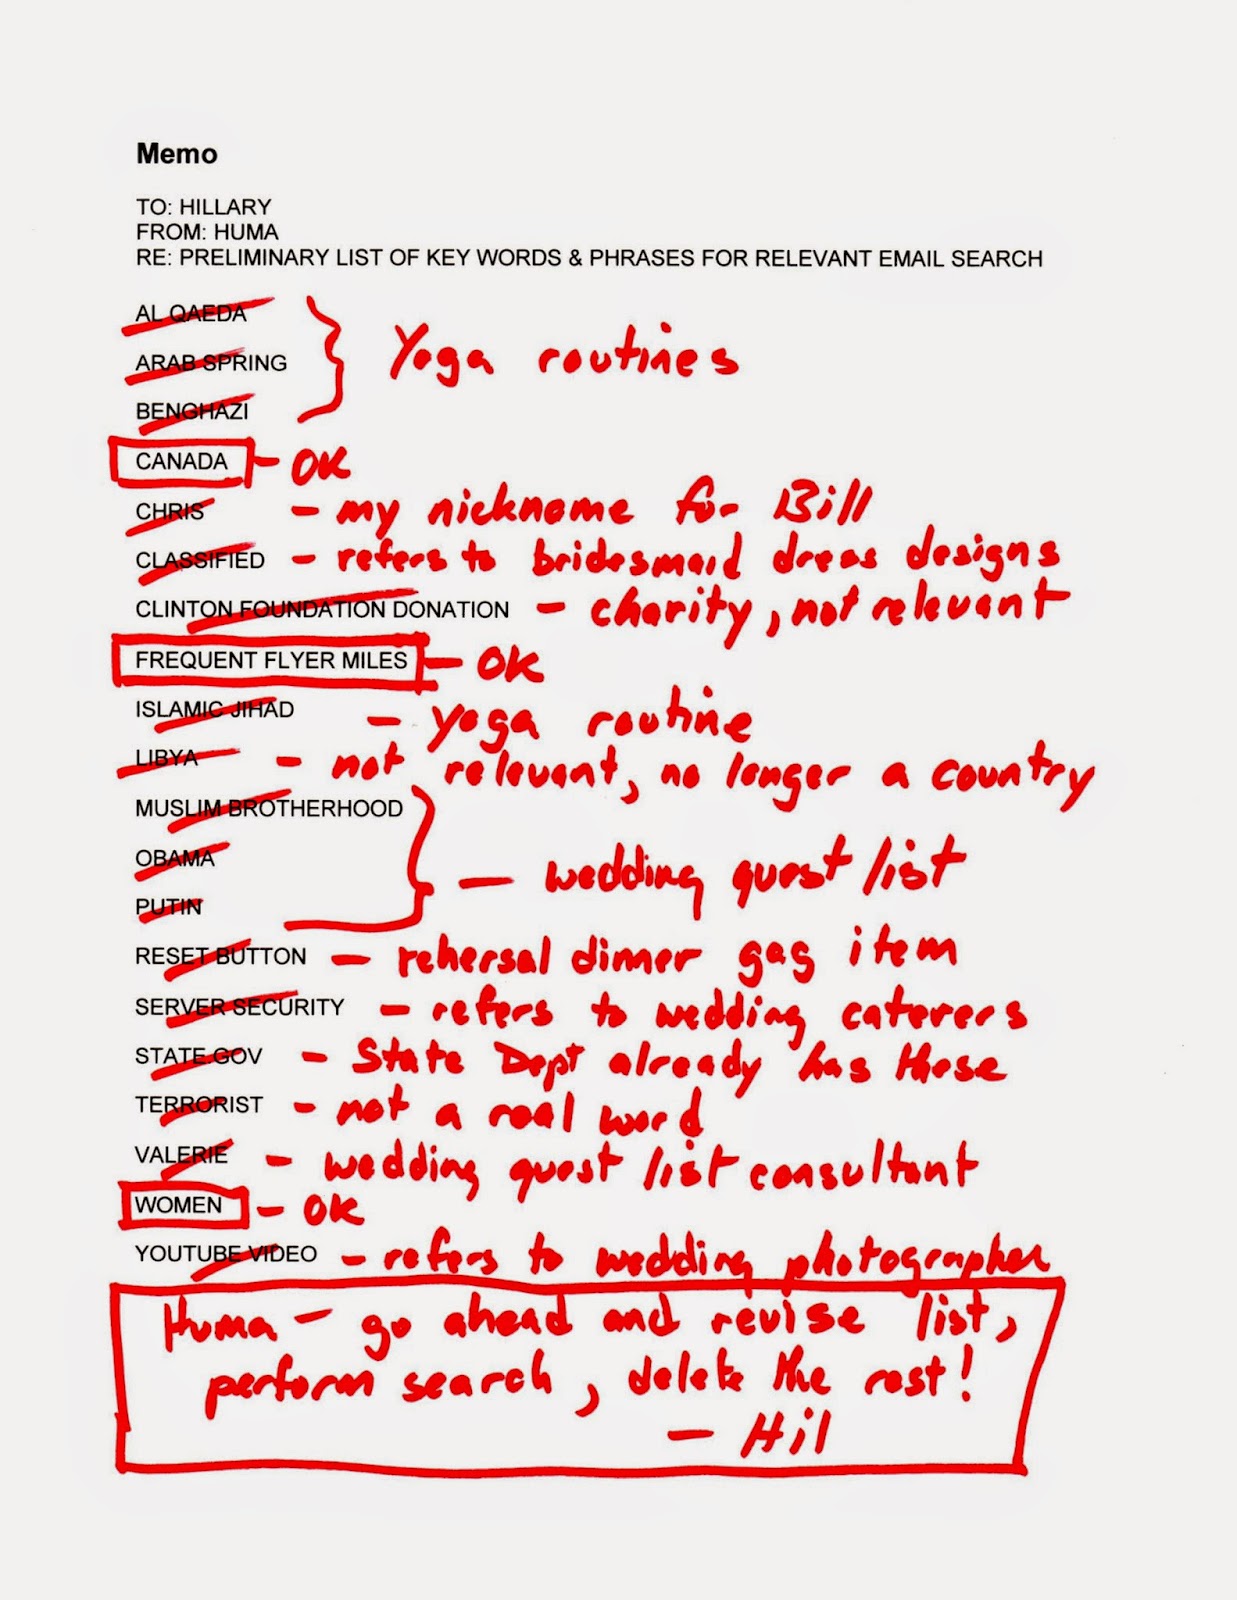 Memo
TO: HILLARY
FROM: HUMA
RE: PRELIMINARY LIST OF KEY WORDS & PHRASES FOR RELEVANT EMAIL SEARCH
AL QAEDA
ARAB SPRING Yoga routines
BENGHAZI
CANADA - OK
CHRIS - my nickname for Bill
CLASSIFIED - refers to bridesmaid dress designs
CLINTON FOUNDATION DONATION - charity, not relevant
FREQUENT FLYER MILES - OK
ISLAMIC JIHAD - yoga routine
LIBYA - not relevant, no longer a country
MUSLIM BROTHERHOOD
OBAMA - wedding guest list
PUTIN
RESET BUTTON - rehersal dinner gag item
SERVER SECURITY - refers to wedding caterers
STATE.GOV - State Dept already has these
TERRORIST - not a real word
VALERIE - wedding guest list consultant
WOMEN - OK
YOUTUBE VIDEO - refers to wedding photographer
Huma - go ahead and revise list,
perform search, delete the rest!
- Hil